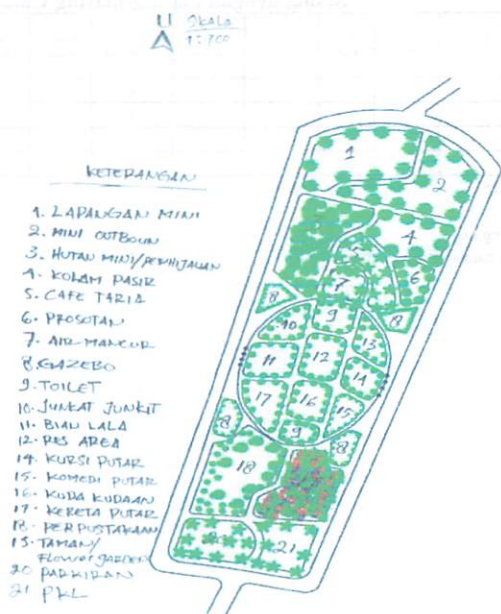 U SKALA
1:700
KETERANGAN
1. LAPANGAN MINI
2. MINI OUTBOUN
3. HUTAN MINI/PENHIJAUAN
4. KOLAM PASIR
5. CAFE TARIA
6. PROSOTAN
7. AIR MANCUR
8. GAZEBO
9. TOILET
10. JUNKAT JUNKIT
11. BIAN LALA
12. RES AREA
14. KURSI PUTAR
15. KOMEDI PUTAR
16. KUDA KUDAAN
17. KERETA PUTAR
18. PERPUSTAKAAN
19. TAMAN/
FLOWER GARDEN
20 PARKIRAN
21 PKL
1
2
4
6
7
8
8
9
10
13
11
12
14
17
16
15
8
9
8
18
20
21